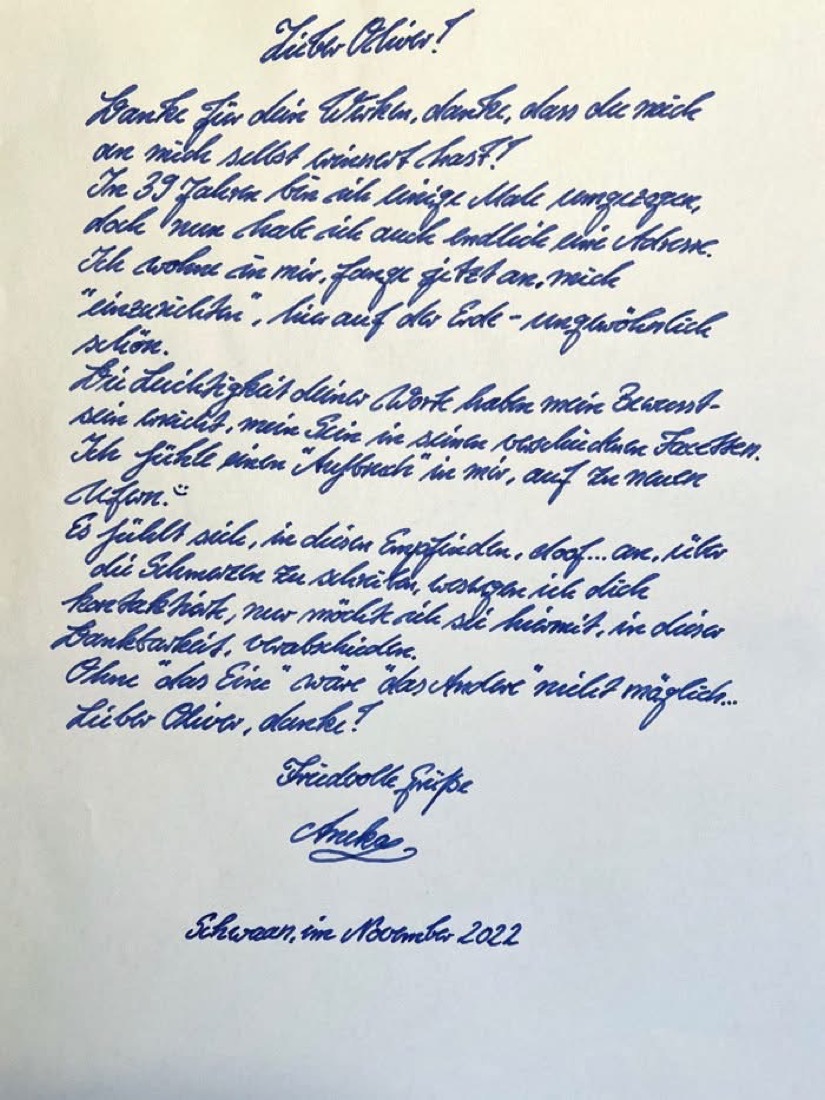 Lieber Oliver!
Danke für dein Wirken, danke, dass du mich
an mich selbst erinnert hast!
In 39 Jahren bin ich einige Male umgezogen,
doch nun habe ich auch endlich eine Adresse.
Ich wohne in mir, fange jetzt an, mich
"einzurichten", hier auf der Erde - ungewöhnlich
schön.
Die Leichtigkeit deiner Worte haben mein Bewusst-
sein erreicht, mein Sein in seinen verschiedenen Facetten.
Ich fühle einen "Aufbruch" in mir, auf zu neuen
Ufern. ☺
Es fühlt sich, in diesen Empfinden, doof... an, über
die Schmerzen zu schreiben, weswegen ich dich
kontaktierte, nur möchte ich sie hiermit, in dieser
Dankbarkeit, verabschieden.
Ohne "das Eine" wäre "das Andere" nicht möglich...
Lieber Oliver, danke!
Friedvolle Grüße
Anika
Schwaan, im November 2022